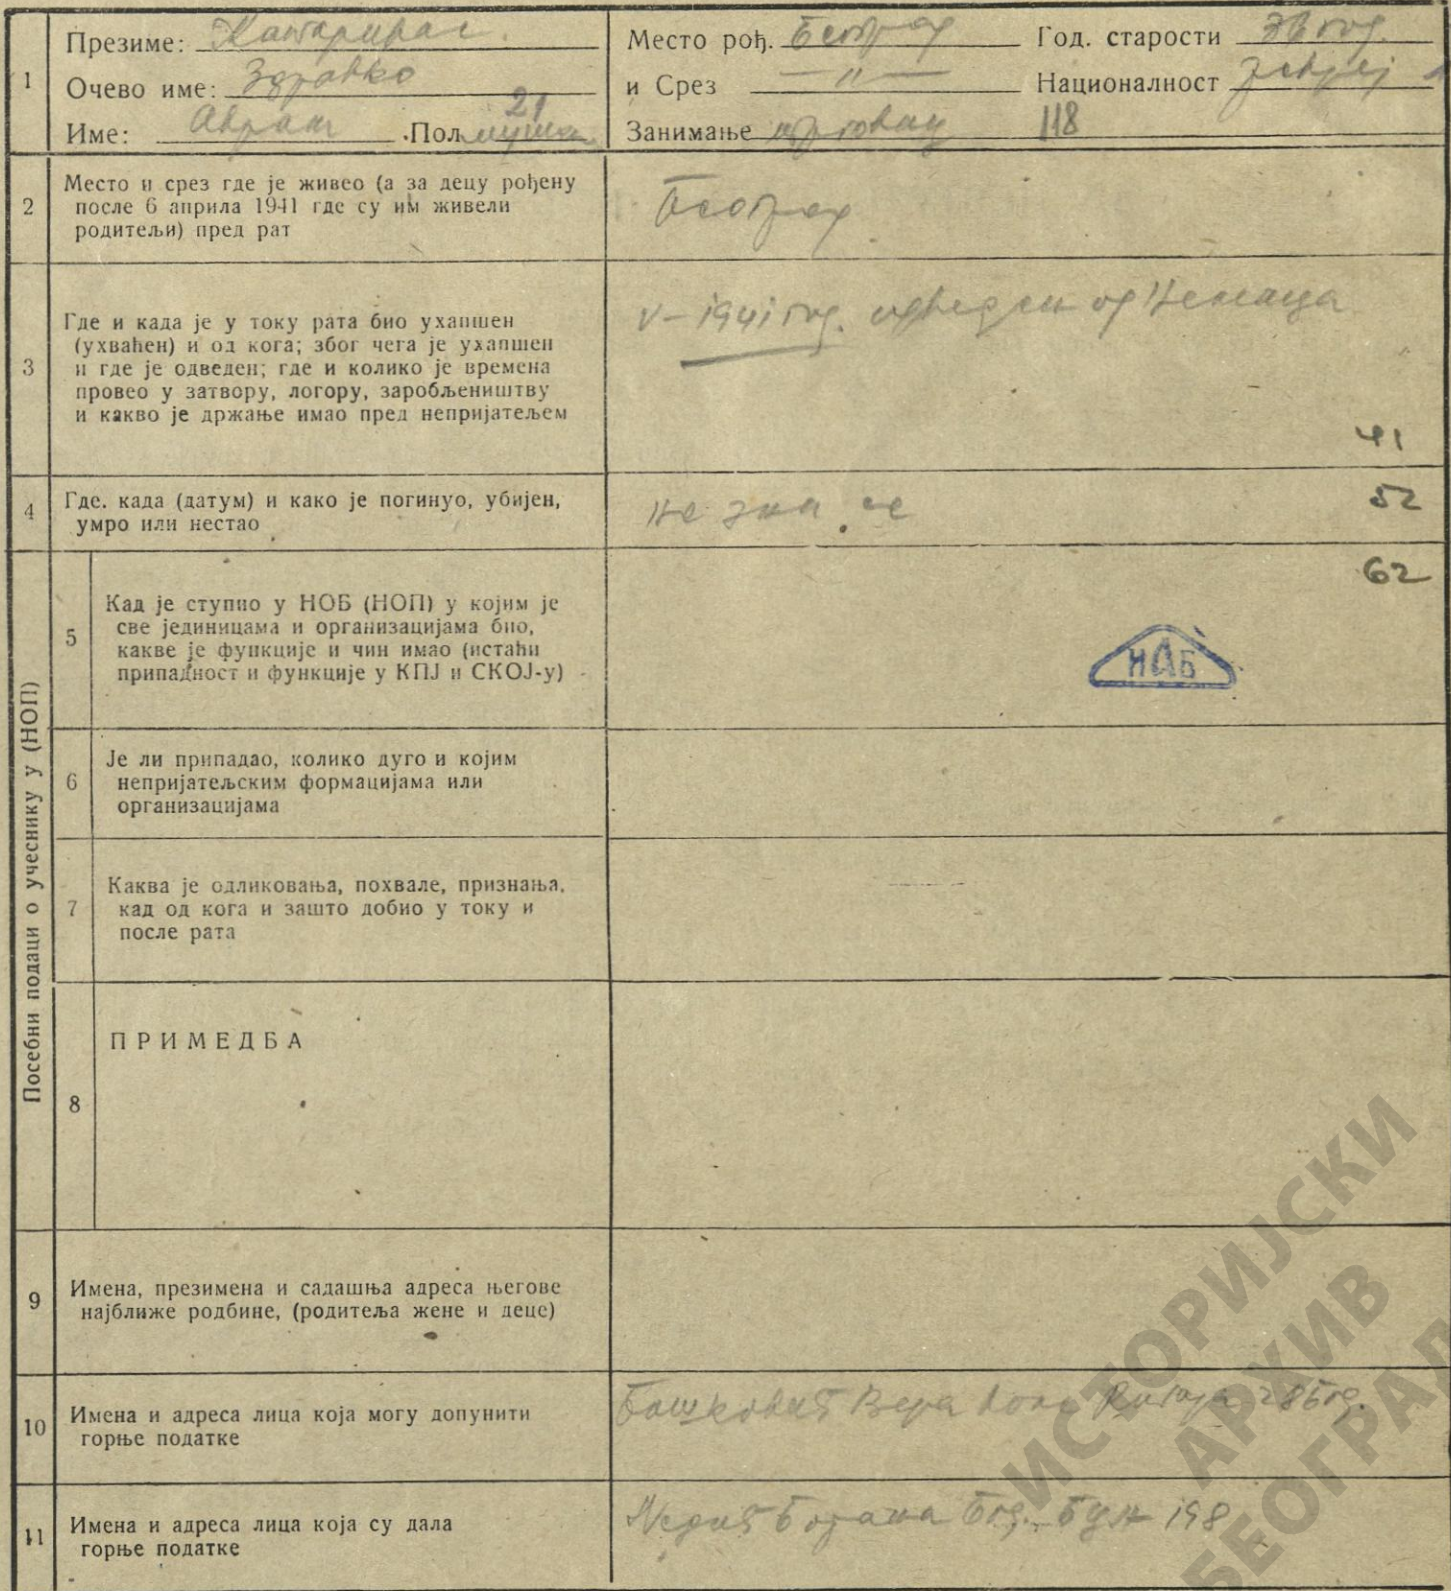 1
Презиме: Катаривас
Очево име: Здравко
Име: Аврам Пол мушки
21
Место рођ. Београд
Год. старости 38 год.
и Срез —"—
Националност јевреј
Занимање трговац 118
2
Место и срез где је живео (а за децу рођену
после 6 априла 1941 где су им живели
родитељи) пред рат
Београд
3
Где и када је у току рата био ухапшен
(ухваћен) и од кога; због чега је ухапшен
и где је одведен; где и колико је времена
провео у затвору, логору, заробљеништву
и какво је држање имао пред непријатељем
V – 1941 год. одведен од Немаца
41
4
Где, када (датум) и како је погинуо, убијен,
умро или нестао
Не зна се
52
Посебни подаци о учеснику у (НОП)
5
Кад је ступио у НОБ (НОП) у којим је
све јединицама и организацијама био,
какве је функције и чин имао (истаћи
припадност и функције у КПЈ и СКОЈ-у)
62
НАБ
6
Је ли припадао, колико дуго и којим
непријатељским формацијама или
организацијама
7
Каква је одликовања, похвале, признања,
кад од кога и зашто добио у току и
после рата
8
ПРИМЕДБА
9
Имена, презимена и садашња адреса његове
најближе родбине, (родитеља жене и деце)
10
Имена и адреса лица која могу допунити
горње податке
Бошковић Вера
11
Имена и адреса лица која су дала
горње податке
Недић Бојана Бул 198
ИСТОРИЈСКИ
АРХИВ
БЕОГРАД